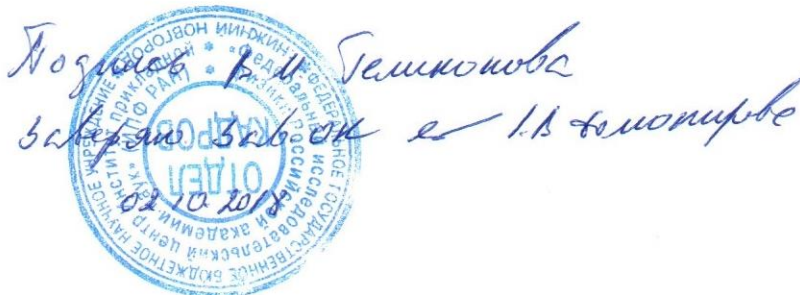 Подпись В М Геликонова
Заверяю Зав ОК
02.10.2018
ФЕДЕРАЛЬНОЕ ГОСУДАРСТВЕННОЕ БЮДЖЕТНОЕ НАУЧНОЕ УЧРЕЖДЕНИЕ
НИЖНИЙ НОВГОРОД
«Федеральный исследовательский центр Институт прикладной физики Российской академии наук» (ИПФ РАН)
ОТДЕЛ
КАДРОВ